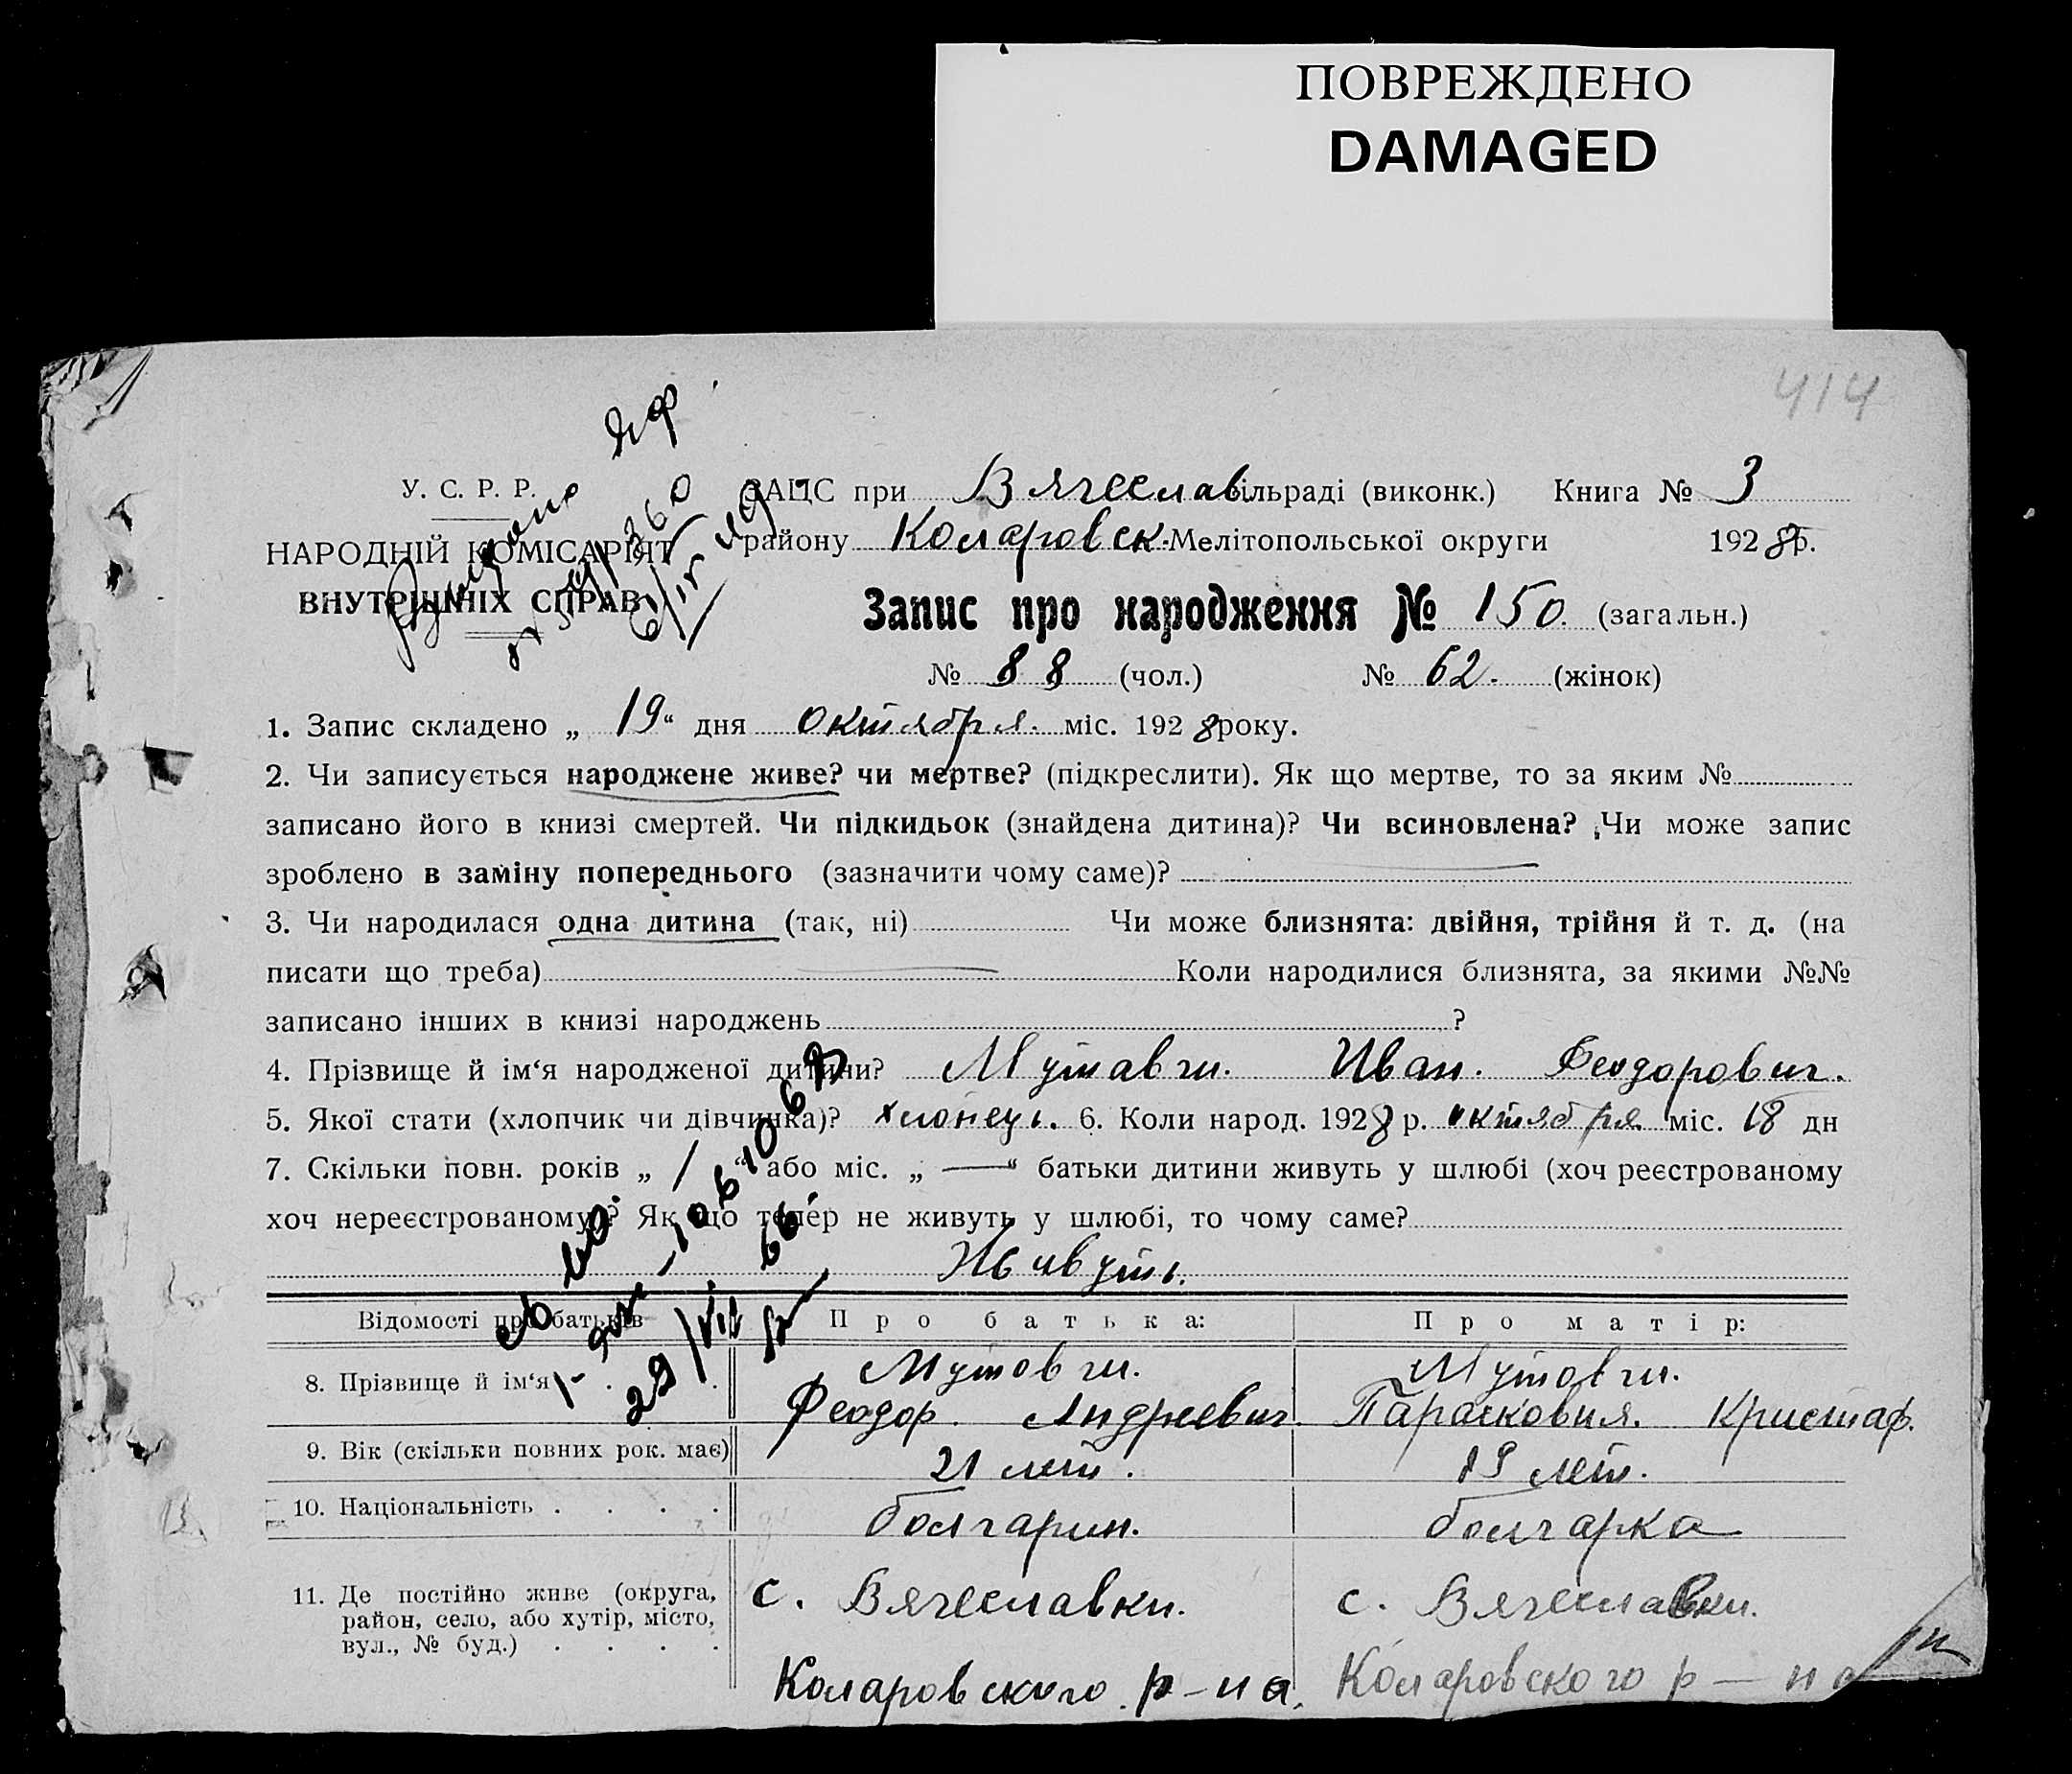 ПОВРЕЖДЕНО
DAMAGED
414
У. С. Р. Р.
НАРОДНІЙ КОМІСАРІЯТ
ВНУТРІШНІХ СПРАВ
ЗАЦС при Вячеслав ільраді (виконк.) Книга № 3
району Коларовск. Мелітопольської округи 1928 р.
Запис про народження № 150. (загальн.)
№ 88 (чол.) № 62. (жінок)
1. Запис складено „ 19 “ дня октября. міс. 1928 року.
2. Чи записується народжене живе? чи мертве? (підкреслити). Як що мертве, то за яким №
записано його в книзі смертей. Чи підкидьок (знайдена дитина)? Чи всиновлена? Чи може запис
зроблено в заміну попереднього (зазначити чому саме)?
3. Чи народилася одна дитина (так, ні) Чи може близнята: двійня, трійня й т. д. (на
писати що треба) Коли народилися близнята, за якими №№
записано інших в книзі народжень ?
4. Прізвище й ім‘я народженої дитини? Мутавчи. Иван. Феодорович.
5. Якої стати (хлопчик чи дівчинка)? хлопець. 6. Коли народ. 1928 р. октября міс. 18 дн
7. Скільки повн. років „ 1 “ або міс. „ — “ батьки дитини живуть у шлюбі (хоч реєстрованому
хоч нереєстрованому)? Як що тепер не живуть у шлюбі, то чому саме?
Живуть.
Відомості про батьків Про батька: Про матір:
8. Прізвище й ім‘я Мутовчи. Мутовчи.
Феодор. Андреевич. Парасковия. Кристаф.
9. Вік (скільки повних рок. має) 21 лет. 19 лет.
10. Національність . . . . болгарин. болгарка
11. Де постійно живе (округа,
район, село, або хутір, місто,
вул., № буд.) . . . .
с. Вячеславки. с. Вячеславки.
Коларовского р-на. Коларовского р-на